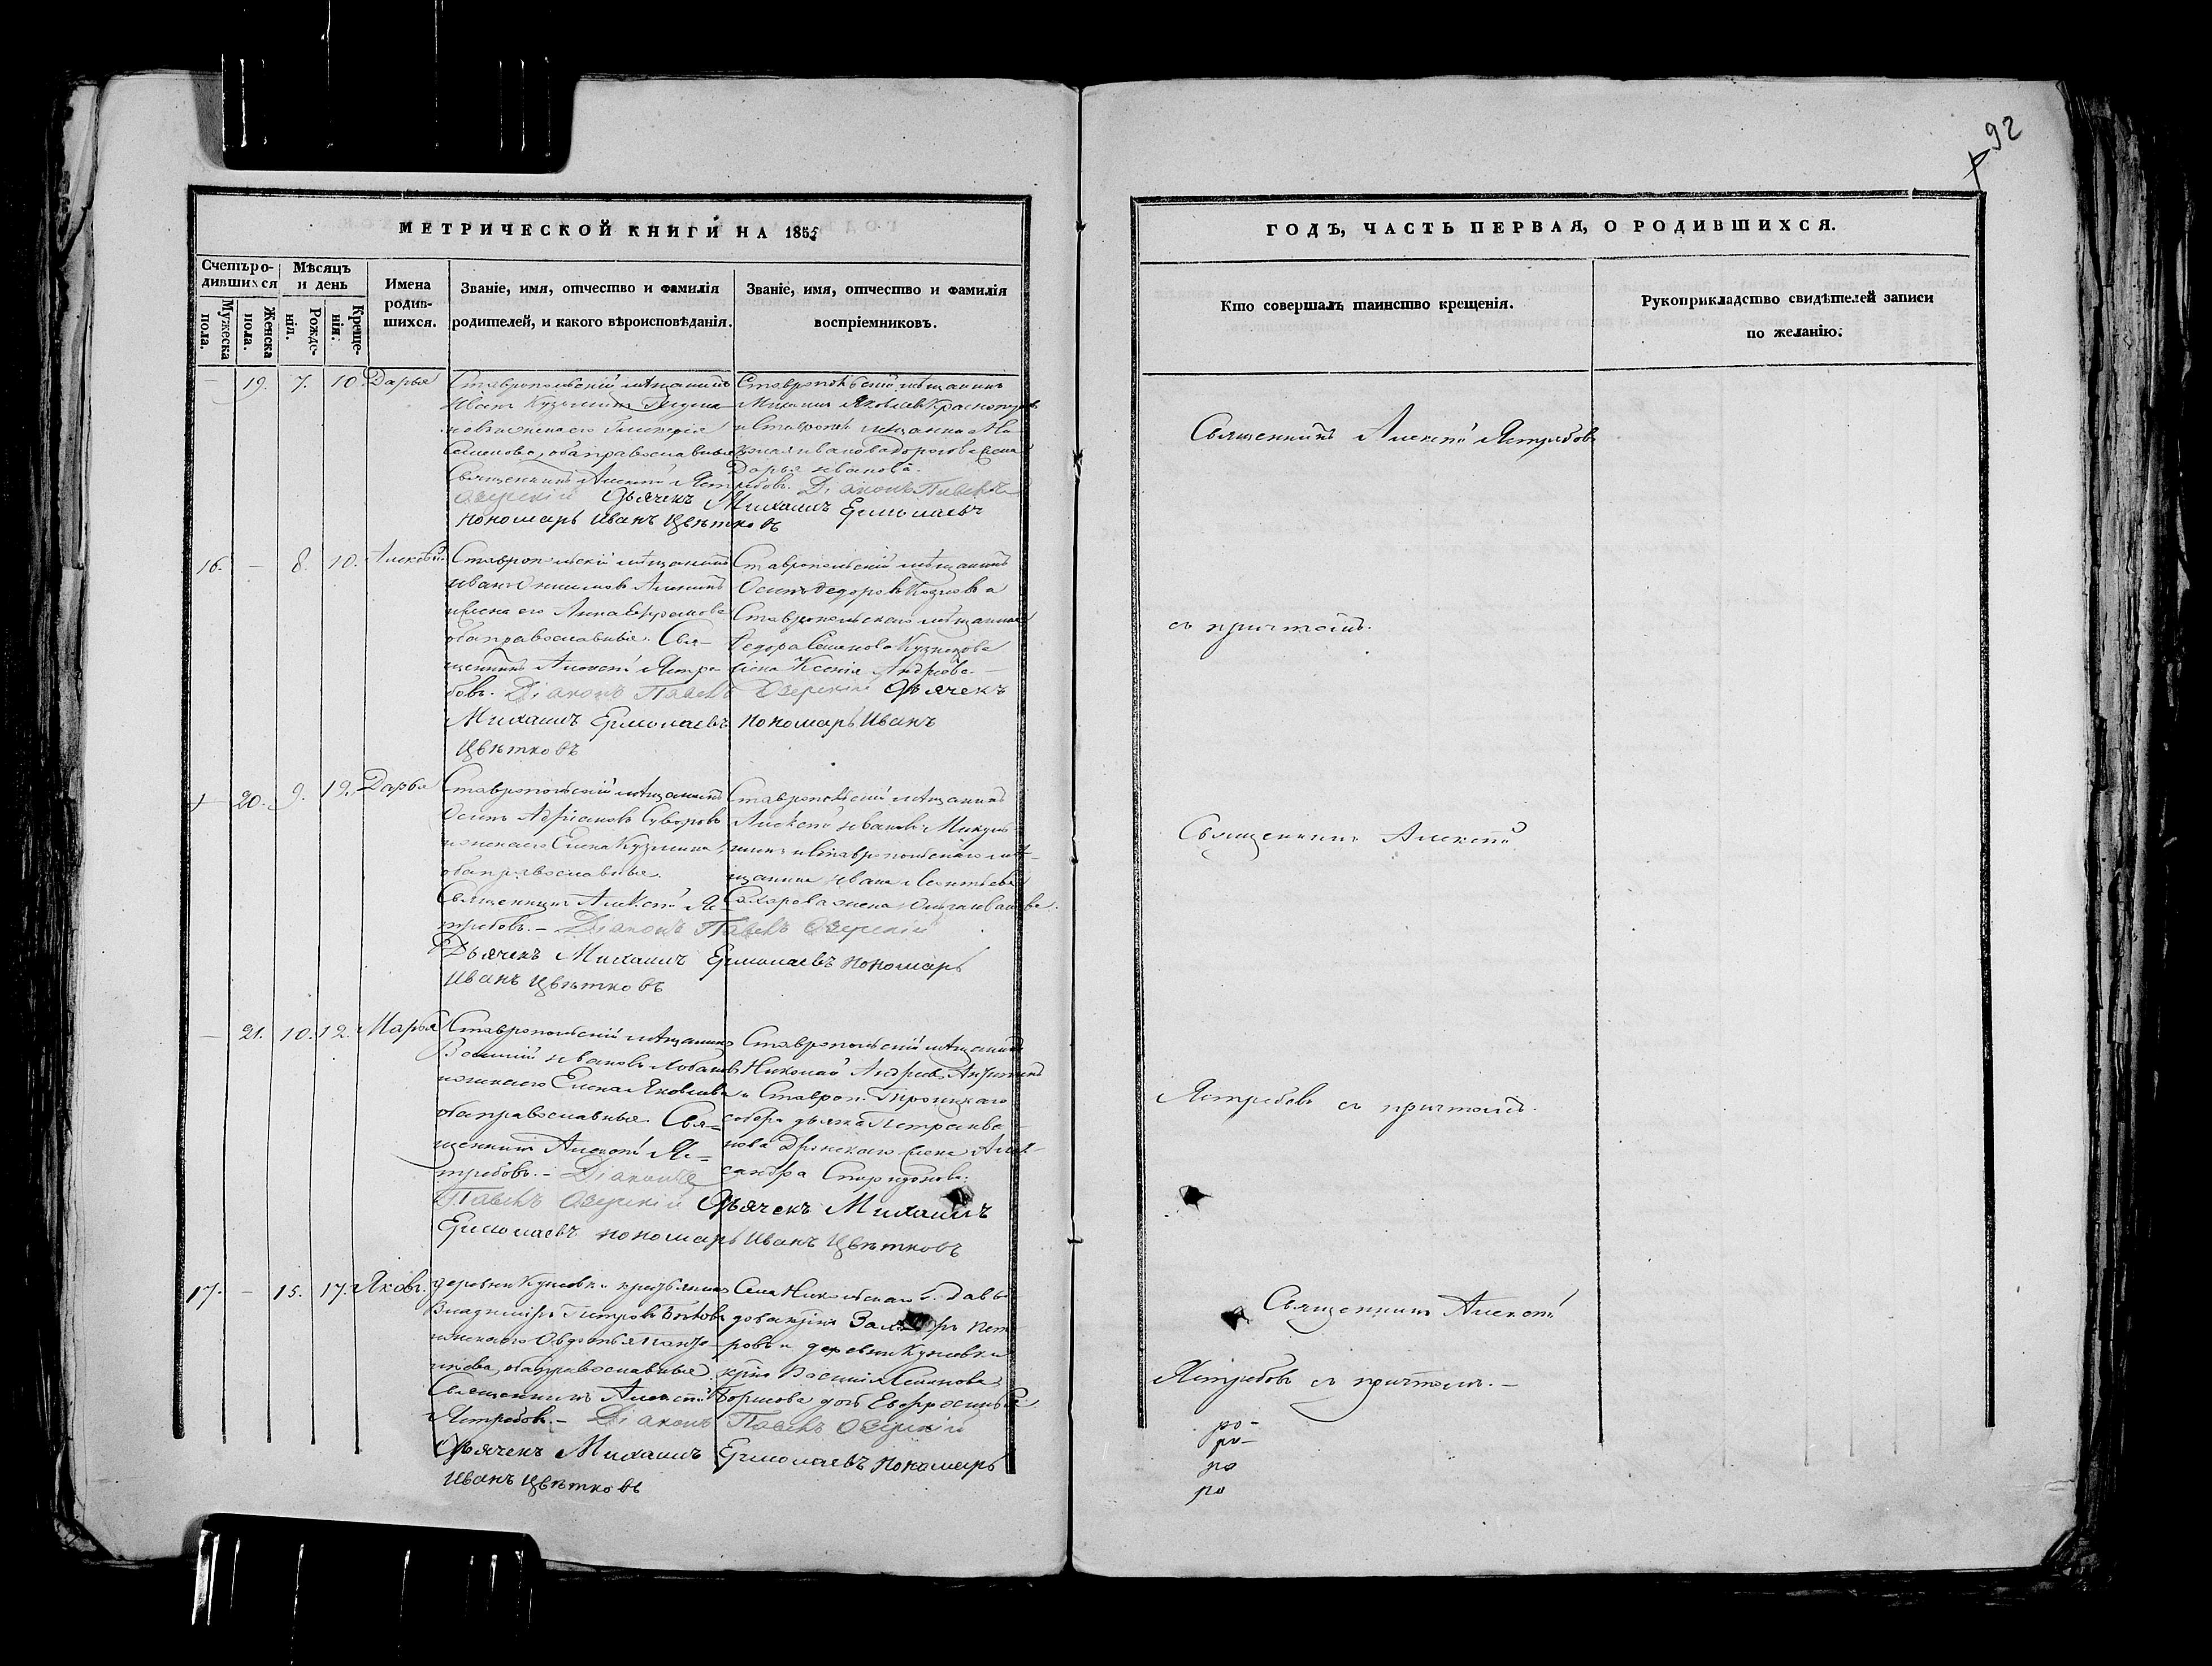 92
МЕТРИЧЕСКОЙ КНИГИ НА 1855
Счетъ родившихся
Мужеска пола.
Женска пола.
Мѣсяцъ и день
Рожденія.
Крещенія.
Имена родившихся.
Званіе, имя, отчество и фамилія
родителей, и какого вѣроисповѣданія.
Званіе, имя, отчество и фамилія
воспріемниковъ.
— 19. 7. 10. Дарья
Ставропольскій мѣщанинъ
Иванъ Кузьминъ
и жена его Гликерія
Семенова, оба православные
Священникъ Алексѣй Ястребовъ. Діаконъ Павелъ
Озерскій Дьячекъ Михаилъ Ермолаевъ
пономарь Иванъ Цвѣтковъ
Ставропольскій мѣщанинъ
Михаилъ Яковлевъ
Дарья Иванова.
16. — 8. 10. Алексѣй
Ставропольскій мѣщанинъ
Иванъ
и жена его Анна Ефремова
оба православные. Свя-
щенникъ Алексѣй Ястре-
бовъ. Діаконъ Павелъ Озерскій Дьячекъ
Михаилъ Ермолаевъ пономарь Иванъ
Цвѣтковъ
Ставропольскій мѣщанинъ
Осипъ Федоровъ Козловъ и
Ставропольскаго мѣщанина
Федора Семенова Кузнецова
жена Ксенія Андреева. —
20. 9. 12. Дарья
Ставропольскій мѣщанинъ
Осипъ Адріановъ Суворовъ
и жена его Елена Кузьмина,
оба православные.
Священникъ Алексѣй Яс-
требовъ. — Діаконъ Павелъ Озерскій
Дьячекъ Михаилъ Ермолаевъ пономарь
Иванъ Цвѣтковъ
Ставропольскій мѣщанинъ
Алексѣй Ивановъ Микуль-
шинъ и Ставропольскаго мѣ-
щанина Ивана Леонтьева
Сахарова жена
— 21. 10. 12. Марья
Ставропольскій мѣщанинъ
Василій Ивановъ Лобановъ
и жена его Елена Яковлева
оба православные. Свя-
щенникъ Алексѣй Яс-
требовъ. — Діаконъ
Павелъ Озерскій Дьячекъ Михаилъ
Ермолаевъ пономарь Иванъ Цвѣтковъ
Ставропольскій мѣщанинъ
Николай Андреевъ
и Ставроп. Троицкаго
собора дьячка Петра Ива-
нова жена Алек-
сандра Спиридонова.
17. — 15. 17. Яковъ.
деревни Кунѣевки крестьянинъ
Владиміръ Петровъ
и жена его Овдотья
оба православные.
Священникъ Алексѣй
Ястребовъ. — Діаконъ Павелъ Озерскій
Дьячекъ Михаилъ Ермолаевъ пономарь
Иванъ Цвѣтковъ
Села Никольскаго г. Давы-
дова крѣс. Пет-
ровъ и деревни Кунѣевки
крѣс. Василія Семенова
Борисова дочь Евфросинья
ГОДЪ, ЧАСТЬ ПЕРВАЯ, О РОДИВШИХСЯ.
Кто совершалъ таинство крещенія.
Рукоприкладство свидѣтелей записи
по желанію.
Священникъ Алексѣй Ястребовъ
съ причтомъ.
Священникъ Алексѣй
Ястребовъ съ причтомъ.
Священникъ Алексѣй
Ястребовъ съ причтомъ. —
ро —
ро —
ро
ро